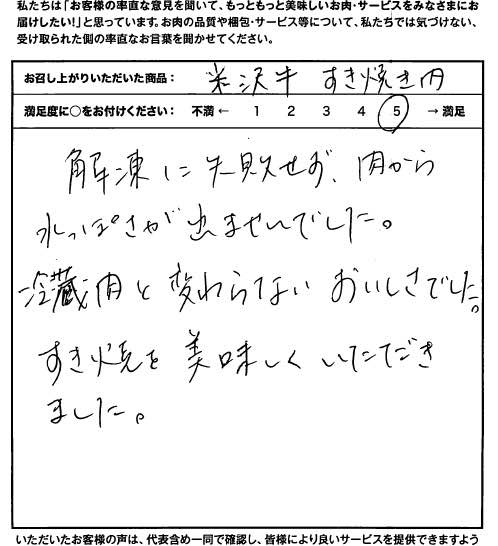 私たちは「お客様の率直な意見を聞いて、もっともっと美味しいお肉・サービスをみなさまにお
届けしたい!」と思っています。お肉の品質や梱包・サービス等について、私たちでは気づけない、
受け取られた側の率直なお言葉を聞かせてください。
お召し上がりいただいた商品: 米沢牛 すき焼き肉
満足度に○をお付けください: 不満 ← 1 2 3 4 5 → 満足
解凍に失敗せず、肉から
水っぽさが出ませんでした。
冷蔵肉と変わらないおいしさでした。
すき焼を美味しくいただき
ました。
いただいたお客様の声は、代表含め一同で確認し、皆様により良いサービスを提供できますよう